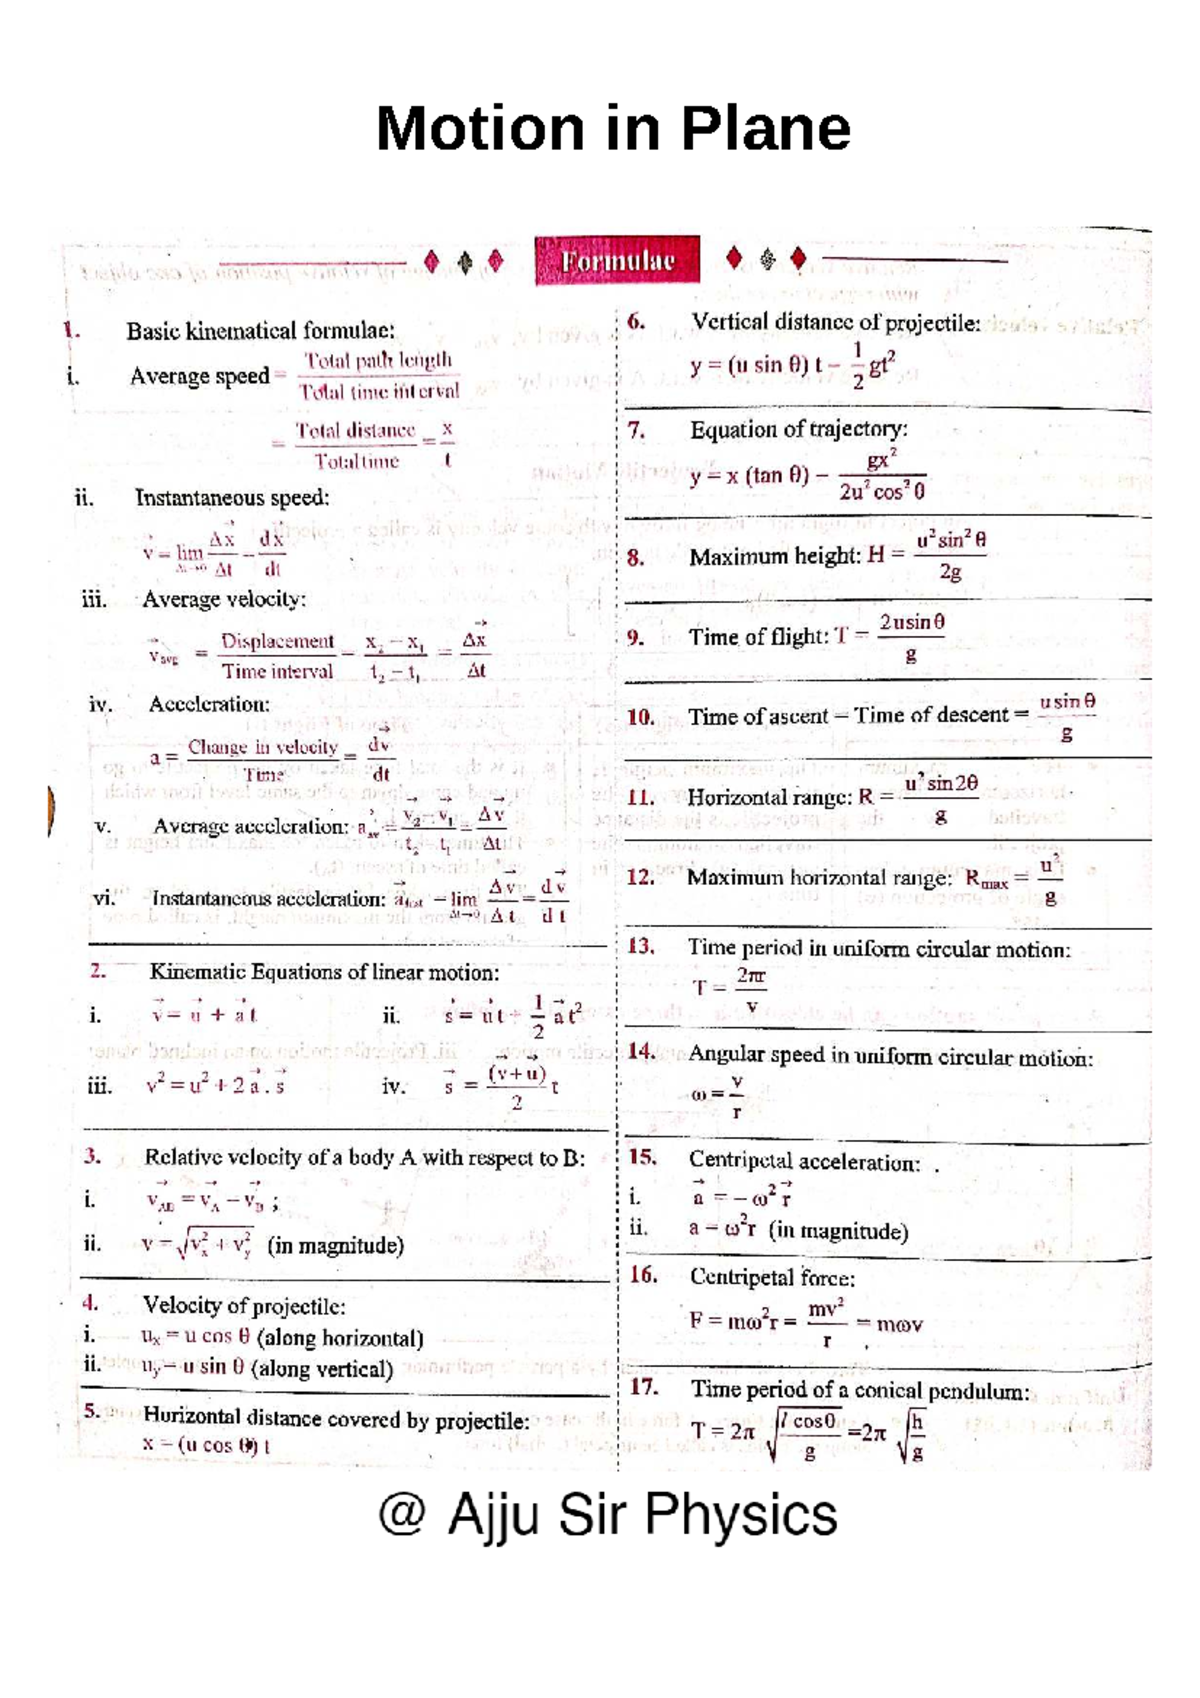 Motion in Plane
Formulae
1. Basic kinematical formulae:
i. Average speed = Total path length / Total time interval
= Total distance / Total time = x / t
ii. Instantaneous speed:
v⃗ = lim Δt→0 Δx⃗ / Δt = dx⃗ / dt
iii. Average velocity:
v⃗avg = Displacement / Time interval = x₂ − x₁ / t₂ − t₁ = Δx⃗ / Δt
iv. Acceleration:
a = Change in velocity / Time = dv⃗ / dt
v. Average acceleration: a⃗av = v⃗₂ − v⃗₁ / t₂ − t₁ = Δv⃗ / Δt
vi. Instantaneous acceleration: a⃗inst = lim Δt→0 Δv⃗ / Δt = dv⃗ / dt
2. Kinematic Equations of linear motion:
i. v⃗ = u⃗ + a⃗ t ii. s⃗ = u⃗ t + 1/2 a⃗ t²
iii. v² = u² + 2 a⃗ . s⃗ iv. s⃗ = (v⃗ + u⃗) / 2 t
3. Relative velocity of a body A with respect to B:
i. v⃗AB = v⃗A − v⃗B ;
ii. v = √(vₓ² + vy²) (in magnitude)
4. Velocity of projectile:
i. uₓ = u cos θ (along horizontal)
ii. uy = u sin θ (along vertical)
5. Horizontal distance covered by projectile:
x = (u cos θ) t
6. Vertical distance of projectile:
y = (u sin θ) t − 1/2 gt²
7. Equation of trajectory:
y = x (tan θ) − gx² / 2u² cos² θ
8. Maximum height: H = u² sin² θ / 2g
9. Time of flight: T = 2u sin θ / g
10. Time of ascent = Time of descent = u sin θ / g
11. Horizontal range: R = u² sin 2θ / g
12. Maximum horizontal range: Rmax = u² / g
13. Time period in uniform circular motion:
T = 2πr / v
14. Angular speed in uniform circular motion:
ω = v / r
15. Centripetal acceleration:
i. a⃗ = − ω² r⃗
ii. a = ω²r (in magnitude)
16. Centripetal force:
F = mω²r = mv² / r = mωv
17. Time period of a conical pendulum:
T = 2π √(l cosθ / g) =2π √(h / g)
@ Ajju Sir Physics